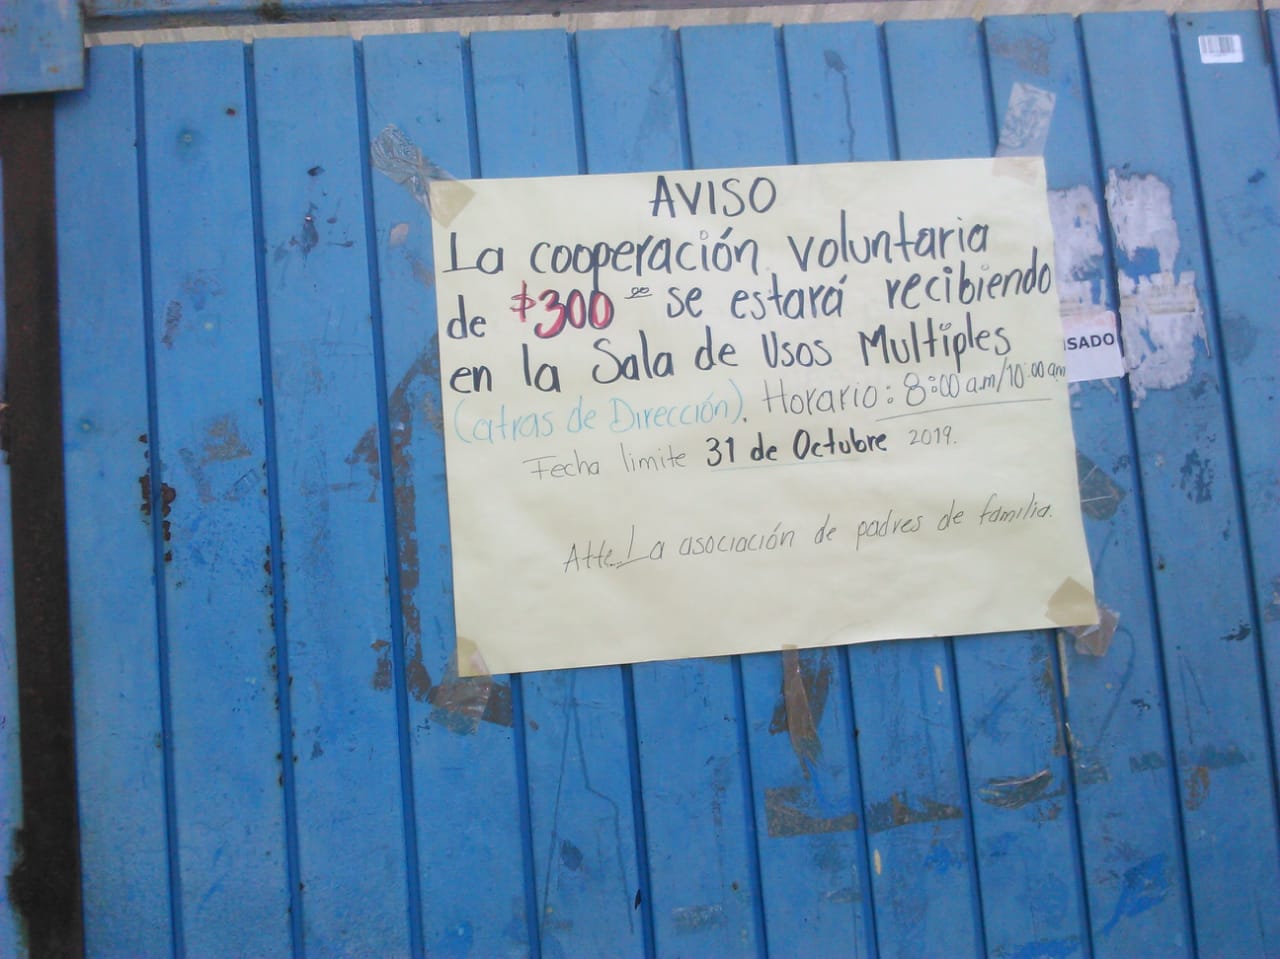 AVISO
La cooperación voluntaria
de $300 00 se estará recibiendo
en la Sala de Usos Multiples
(atras de Dirección). Horario: 8:00 a.m/10:00 am
Fecha limite 31 de Octubre 2019.
Atte. La asociación de padres de familia.
SADO